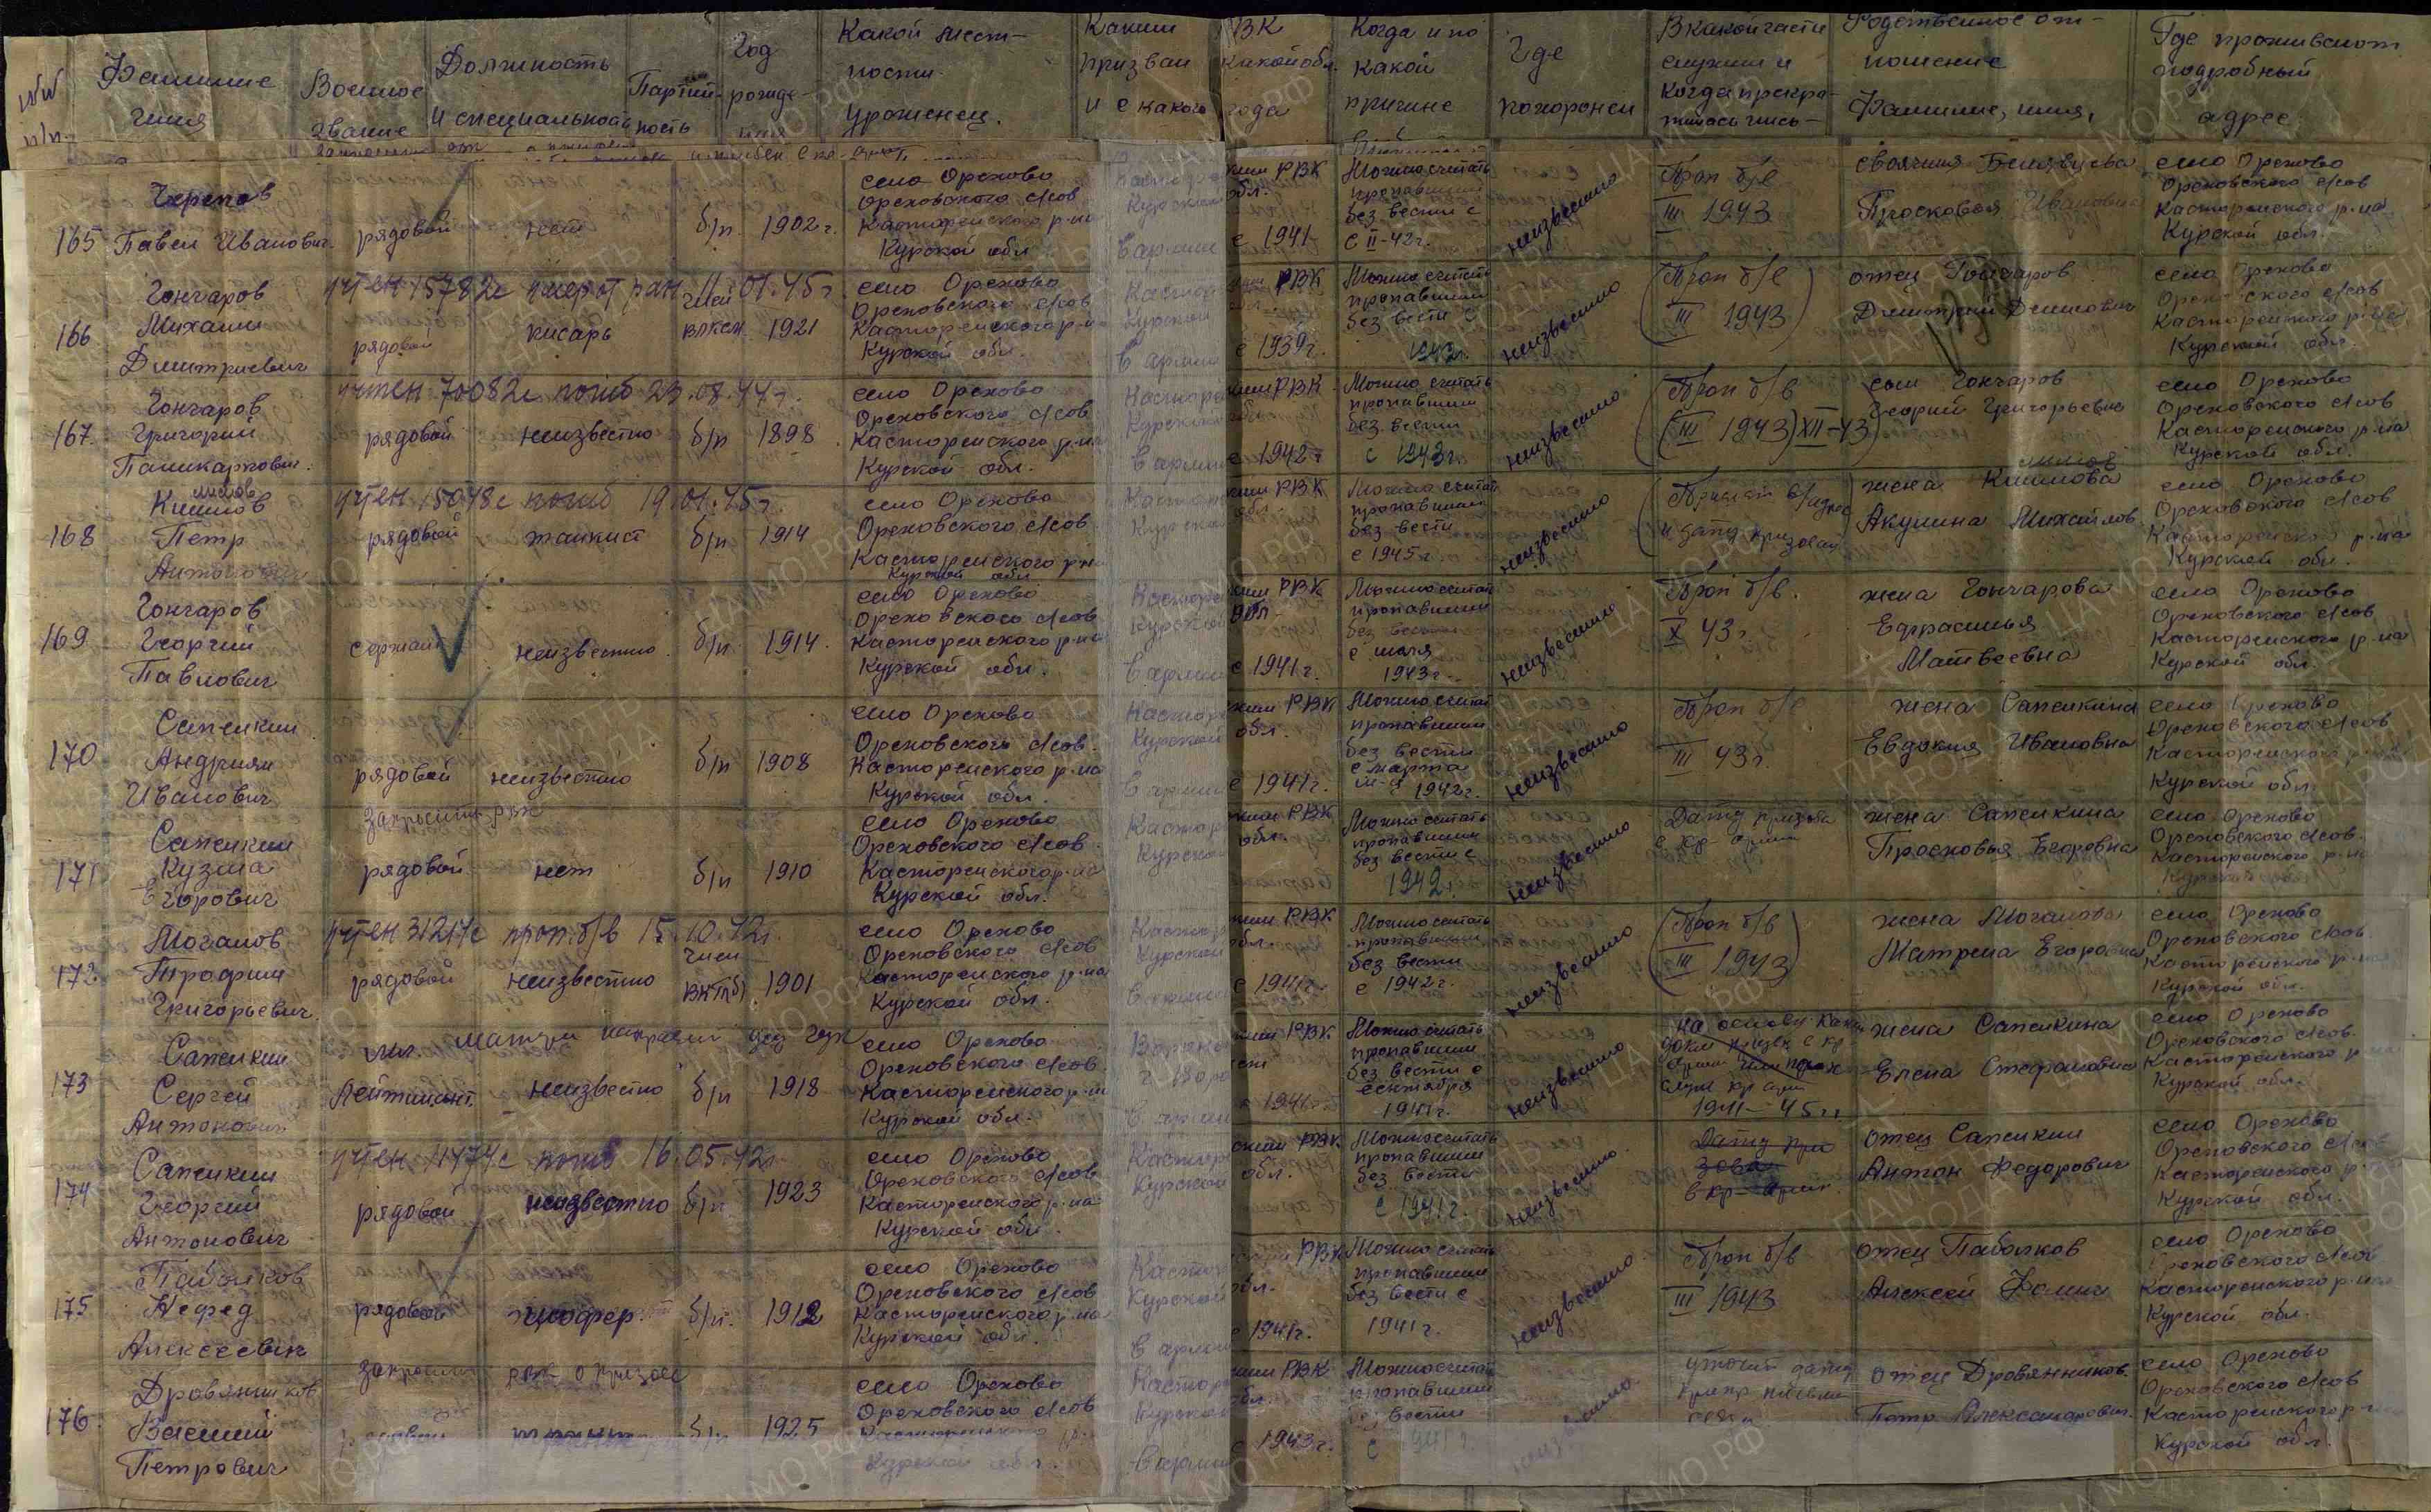 №№ п/п.
Фамилие
Имя
Военное
звание
Должность
и специальность
Партий-
ность
Год
рожде-
ния
Какой мест-
ности
уроженец.
Каким РВК
призван какой обл.
и с какого года
Когда и по
какой
причине
Где
похоронен
В какой части
служил и
когда прекра-
тилась пись-
Родственное от-
ношение
Фамилие, имя,
Где проживают
подробный
адрес
165
Черепов
Павел Иванович
рядовой
нет
б/п.
1902 г.
село Орехово
Ореховского с/сов
Касторенского р-на
Курской обл.
РВК
обл.
с 1941
Можно считать
пропавшим
без вести с
с II-42 г.
неизвестно
Проп б/в
III 1943
своячина Белявцева
Просковья Ивановна
село Орехово
Ореховского с/сов
Касторенского р-на
Курской обл.
166
Гончаров
Михаил
Дмитриевич
учтен 15782с умер от ран 11.01.45 г.
рядовой
писарь
член
ВЛКСМ
1921
село Орехово
Ореховского с/сов
Касторенского р-на
Курской обл.
РВК
в армии с 1939 г.
Можно считать
пропавшим
без вести с
1942 г.
неизвестно
(Проп б/в
III 1943)
отец Гончаров
село Орехово
с/сов
Касторенского р-на
Курской обл.
167.
Гончаров
Григорий
учтен 70082с погиб 23.08.44 г.
рядовой
неизвестно
б/п
1898
село Орехово
Ореховского с/сов
Касторенского р-на
Курской обл.
РВК
в армии с 1942 г
Можно считать
пропавшим
без вести
с 1943 г.
неизвестно
(Проп б/в
(III 1943) XII-43)
сын Гончаров
Георгий Григорьевич
село Орехово
Ореховского с/сов
Касторенского р-на
Курской обл.
168
Петр
учтен 15048с погиб 19.01.45 г.
рядовой
танкист
б/п
1914
село Орехово
Ореховского с/сов
Касторенского р-на
Курской обл.
РВК
обл.
Можно считать
пропавшим
без вести
с 1945 г.
неизвестно
жена
Акулина Михайлов
село Орехово
Ореховского с/сов
Касторенского р-на
Курской обл.
169
Гончаров
Георгий
Павлович
сержант
неизвестно
б/п
1914
село Орехово
Ореховского с/сов
Касторенского р-на
Курской обл.
РВК
обл
в армии с 1941 г.
Можно считать
пропавшим
без вести
с июля
1943 г.
неизвестно
Проп б/в.
X 43 г.
жена Гончарова
Ефрасинья
Матвеевна
село Орехово
Ореховского с/сов
Касторенского р-на
Курской обл.
170
Сапелкин
Андриян
Иванович
рядовой
неизвестно
б/п
1908
село Орехово
Ореховского с/сов.
Касторенского р-на
Курской обл.
РВК
обл.
в армии с 1941 г.
Можно считать
пропавшим
без вести
с марта
1942 г.
неизвестно
Проп б/в
III 43 г.
жена Сапелкина
Евдокия Ивановна
село Орехово
Ореховского с/сов
Касторенского р-на
Курской обл.
171
Сапелкин
Кузма
Егорович
запросить РВК
рядовой
нет
б/п
1910
село Орехово
Ореховского с/сов
Касторенского р-на
Курской обл.
РВК
обл.
Можно считать
пропавшим
без вести с
1942 г.
неизвестно
Дату призова
в кр- арм
жена Сапелкина
Просковья Егоровна
село Орехово
Ореховского с/сов.
Касторенского р-на
Курской обл.
172.
Моганов
Трофим
Григорьевич
учтен 31217с проп.б/в 15.10.42 г.
рядовой
неизвестно
член
ВКП(б)
1901
село Орехово
Ореховского с/сов
Касторенского р-на
Курской обл.
РВК
обл.
с 1941 г.
Можно считать
пропавшим
без вести
с 1942 г.
неизвестно
(Проп б/в
III 1943)
жена Моганова
Матрена Егоровна
село Орехово
Ореховского с/сов.
Касторенского р-на
Курской обл.
173
Сапелкин
Сергей
Антонович
мл.
лейтинант.
неизвестно
б/п
1918
село Орехово
Ореховского с/сов.
Касторенского р-на
Курской обл.
РВК
в армии с 1941 г.
Можно считать
пропавшим
без вести с
сентября
1941 г.
неизвестно
1941-45 гг
жена Сапелкина
Елена Стефановна
село Орехово
Ореховского с/сов.
Касторенского р-на
Курской обл.
174
Сапелкин
Георгий
Антонович
учтен 11474с погиб 16.05.42 г.
рядовой
неизвестно
б/п.
1923
село Орехово
Ореховского с/сов
Касторенского р-на
Курской обл.
РВК
обл.
Можно считать
пропавшим
без вести
с 1941 г.
неизвестно.
Дату при
зова
в кр- арм.
отец Сапелкин
Антон Федорович
село Орехово
Ореховского с/сов
Касторенского р-
Курской обл.
175
Нефед
Алексеевич
рядовой
шофер.
б/п.
1912
село Орехово
Ореховского с/сов
Касторенского р-на
Курской обл.
РВК
обл.
в армии с 1941 г.
Можно считать
пропавшим
без вести с
1941 г.
неизвестно
Проп б/в
III 1943
отец
Алексей Фомич
село Орехово
Ореховского с/сов
Касторенского р-на
Курской обл.
176.
Дровянников
Василий
Петрович
запросить РВК о призове
рядовой
б/п
1925
село Орехово
Ореховского с/сов
Касторенского р-
Курской обл.
РВК
обл.
в армии с 1943 г.
Можно считать
пропавшим
без вести
с
неизвестно
уточнить дату
отец Дровянников
Петр Александрович.
село Орехово
Ореховского с/сов
Касторенского р-на
Курской обл.